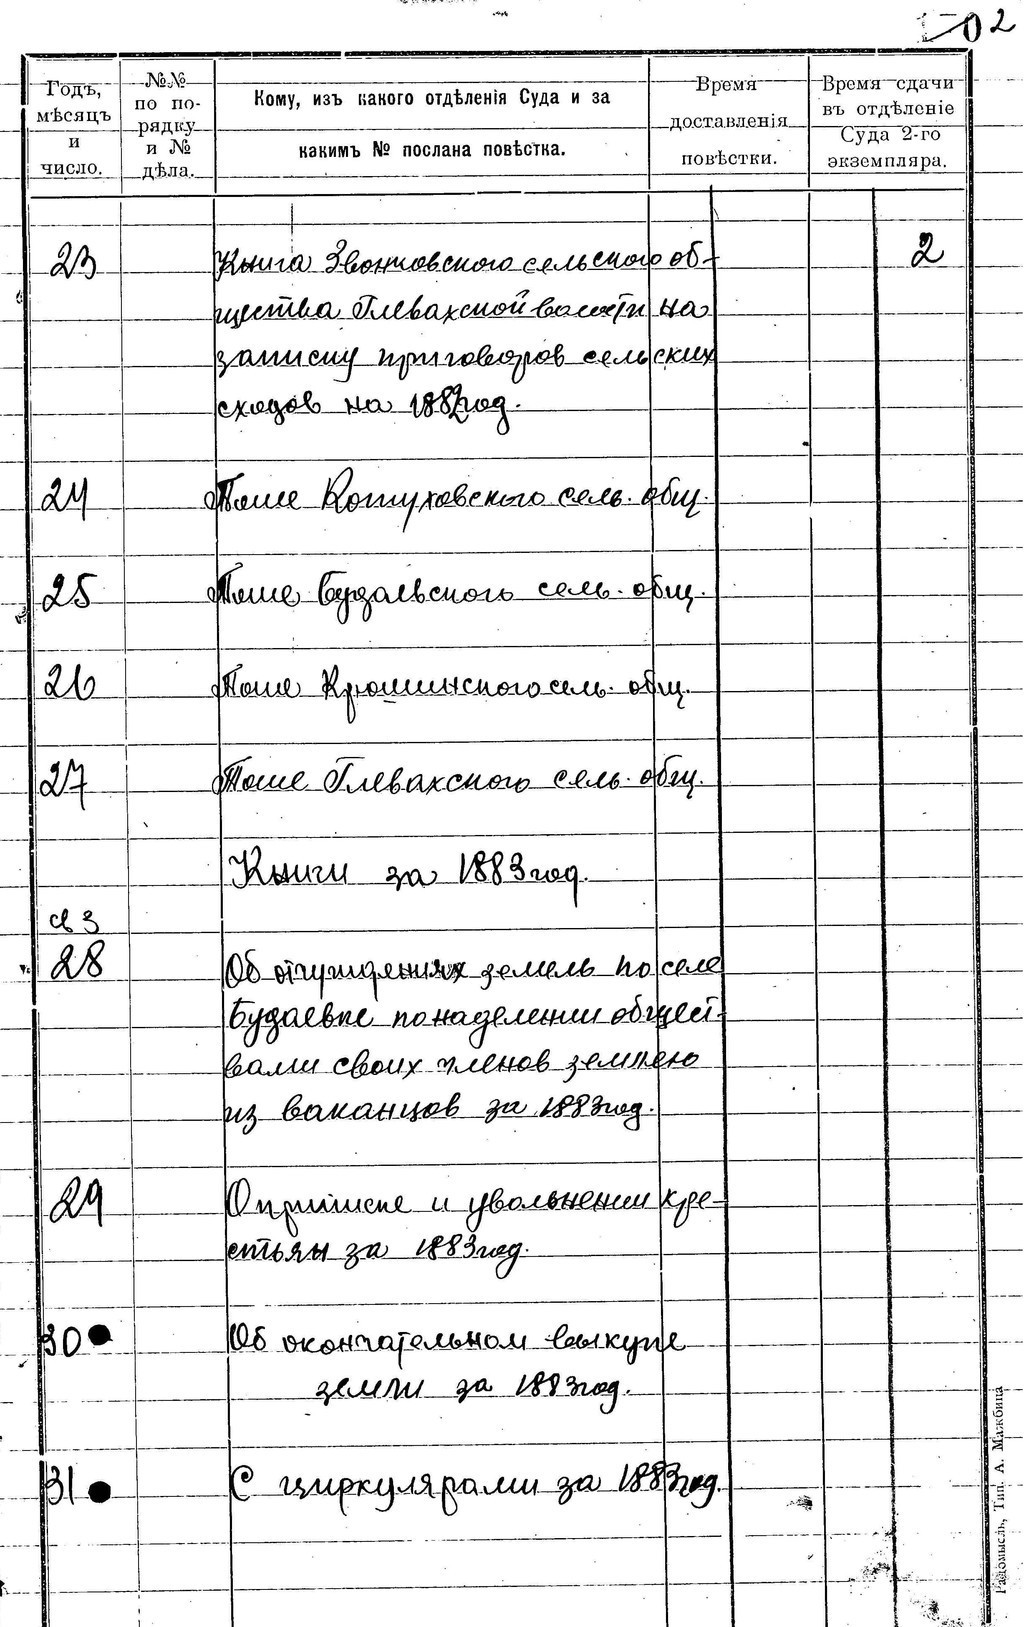 2
Годъ, мѣсяцъ и число.
№№ по по-рядку и № дѣла.
Кому, изъ какого отдѣленія Суда и за
какимъ № послана повѣстка.
Время доставленія повѣстки.
Время сдачи въ отдѣленіе Суда 2-го экземпляра.
23 Книга Звонковского сельского об- 2
щества Глевахской волости на
записку приговоров сельских
сходов на 1882 год.
24 Тоже Кожуховского сель. общ.
25 Тоже Будаевского сель. общ.
26 Тоже Крюшинского сель. общ.
27 Тоже Глевахского сель. общ.
Книги за 1883 год.
св 3
28 Об отчуждениях земель по селе
Будаевке по наделении общест-
вами своих членов землею
из ваканцов за 1883 год.
29 О приписке и увольнении кре-
стьян за 1883 год.
30 Об окончательном выкупе
земли за 1883 год.
31 С циркулярами за 1883 год.
Радомысль, Тип. А. Мажбица